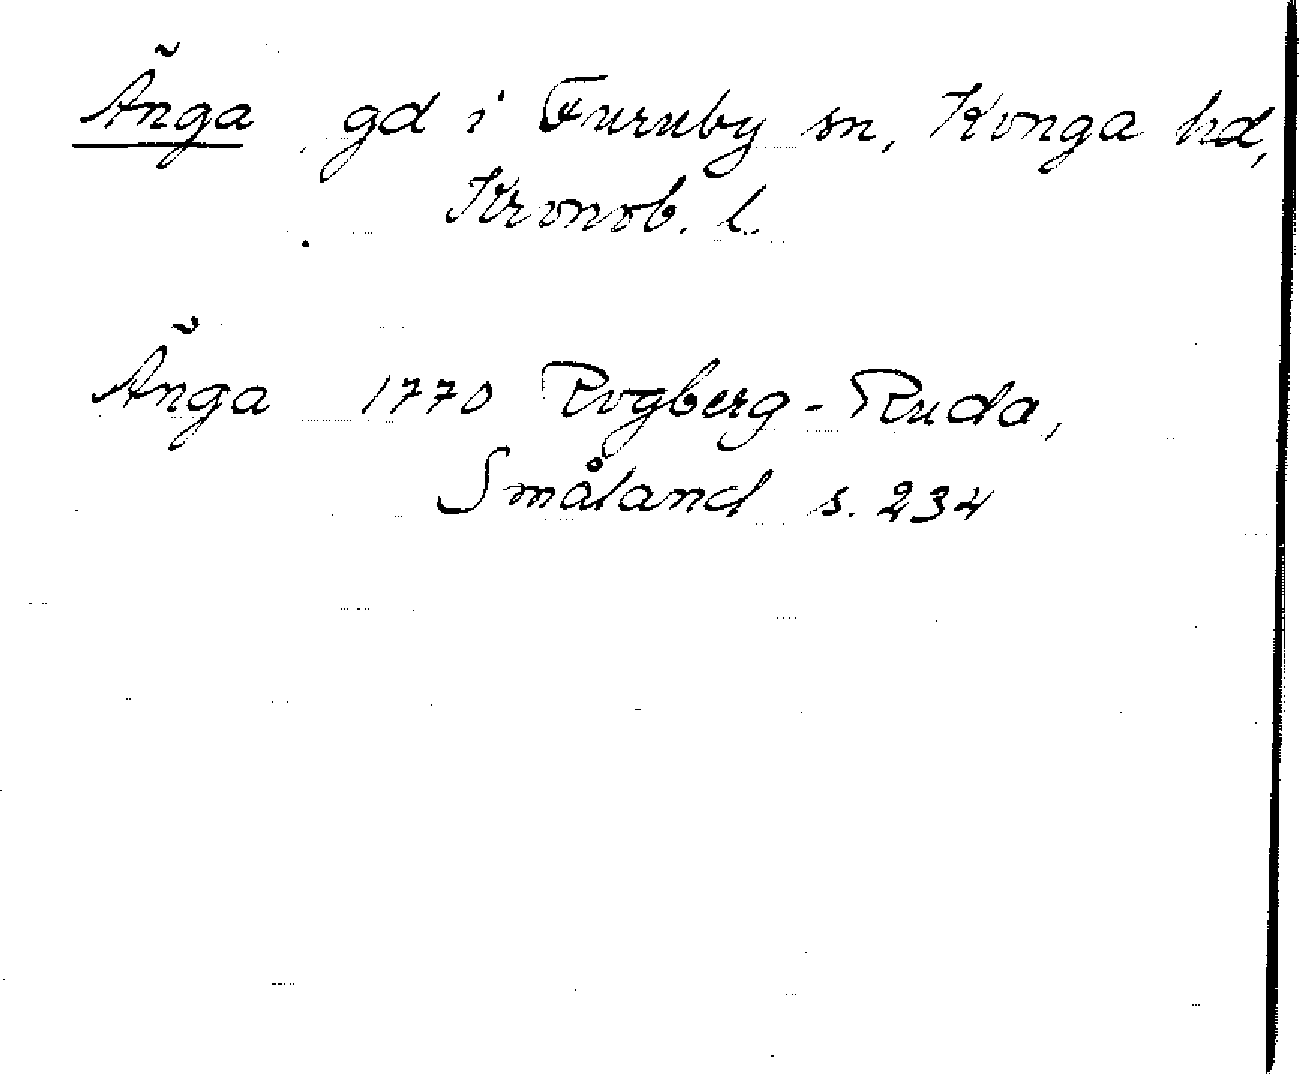 Änga, gd i Furuby sn, Konga hd,
Kronob. l.
Änga 1770 Rogberg-Ruda,
Småland s. 234